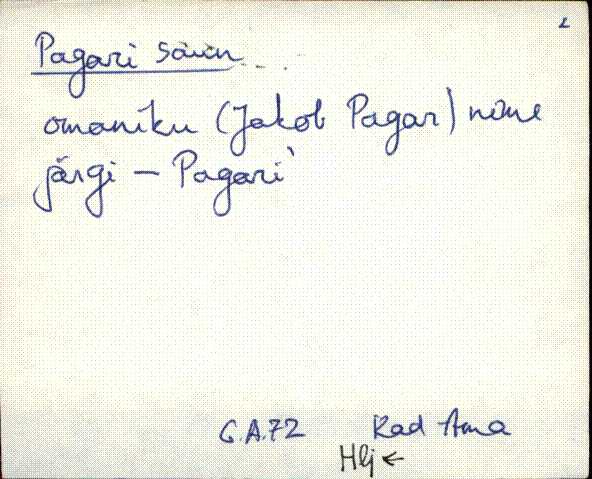 Pagari saun
omaniku (Jakob Pagar) nime
järgi – Pagari
G.A.72 Rad Ama
Hlj ←